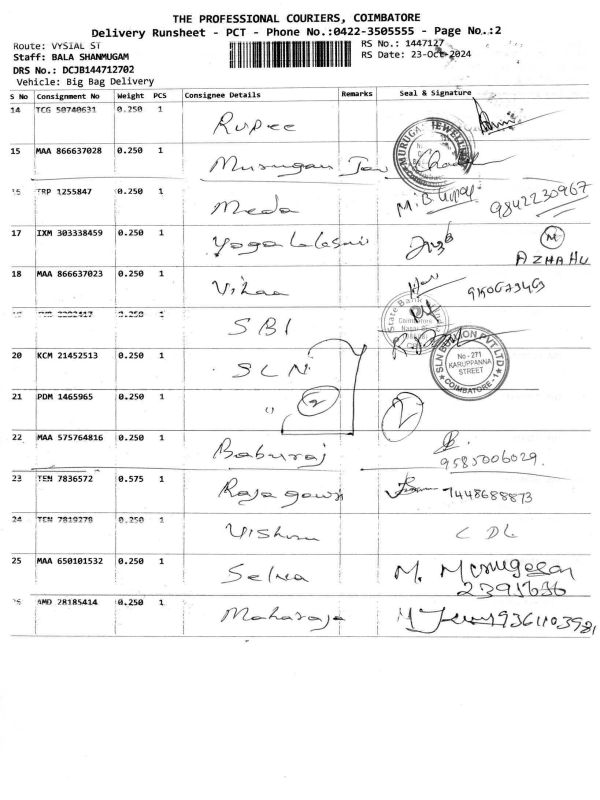 THE PROFESSIONAL COURIERS, COIMBATORE
Delivery Runsheet - PCT - Phone No.:0422-3505555 - Page No.:2
Route: VYSIAL ST
RS No.: 1447127
Staff: BALA SHANMUGAM
RS Date: 23-Oct-2024
DRS No.: DCJB144712702
Vehicle: Big Bag Delivery
S No Consignment No Weight PCS Consignee Details Remarks Seal & Signature
14 TCG 50740631 0.250 1 Rupee
15 MAA 866637028 0.250 1 Murugan
16 TRP 1255847 0.250 1 Meda M.B 9842230967
17 IXM 303338459 0.250 1 Yoga AZHAHU
18 MAA 866637023 0.250 1
0.250 1 SBI
State Bank
Coimbatore
20 KCM 21452513 0.250 1 SLN
SLN BULLION PVT LTD
No - 271
KARUPPANNA
STREET
COIMBATORE - 1
21 PDM 1465965 0.250 1 " 2 2
22 MAA 575764816 0.250 1 Baburaj 9585006029
23 TEN 7836572 0.575 1 Raja gowri 7448688873
24 TEN 7819278 0.250 1 Vishnu CDL
25 MAA 650101532 0.250 1 Selva M. Murugesan
2391676
26 AMD 28185414 0.250 1 Maharaja 9361103981